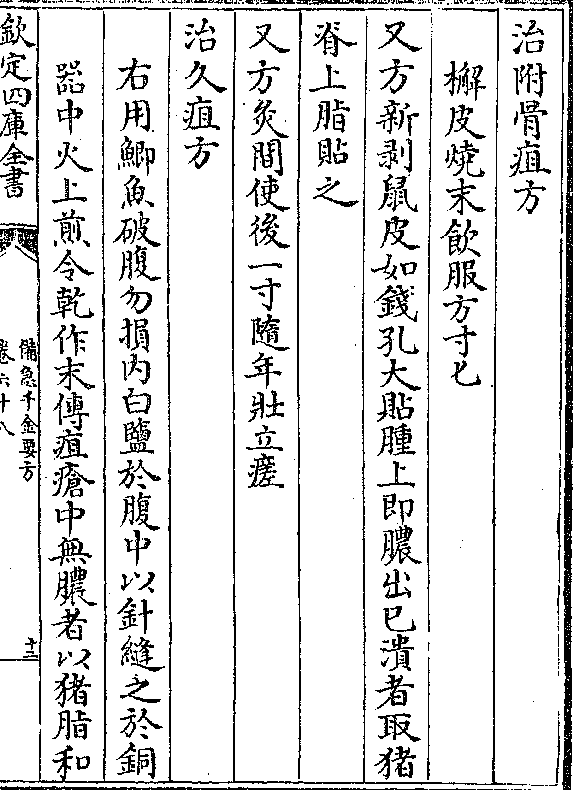 治附骨疽方
槲皮燒末飲服方寸匕
又方新剥鼠皮如錢孔大貼腫上即膿出已潰者取猪
脊上脂貼之
又方灸間使後一寸隨年壯立瘥
治久疽方
右用鯽魚破腹勿損内白鹽於腹中以針縫之於銅
器中火上煎令乾作末傅疽瘡中無膿者以猪脂和
欽定四庫全書
備急千金要方
卷六十八
十三